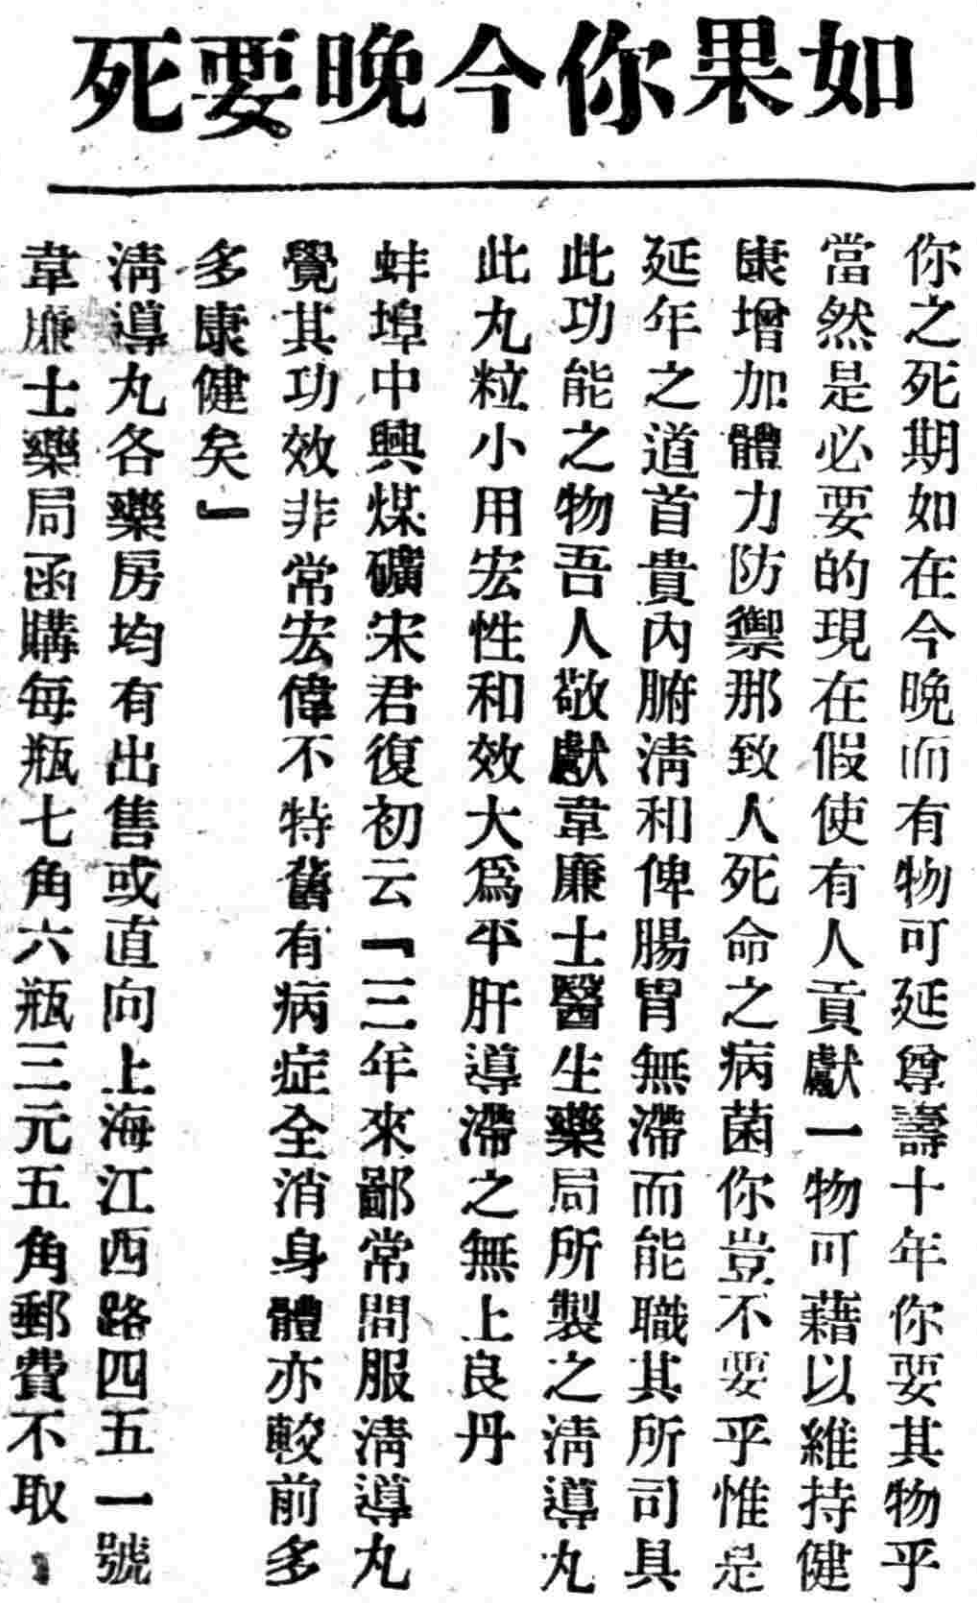 如果你今晚要死
你之死期如在今晚而有物可延尊壽十年你要其物乎
當然是必要的現在假使有人貢獻一物可藉以維持健
康增加體力防禦那致人死命之病菌你豈不要乎惟是
延年之道首貴內腑清和俾腸胃無滯而能職其所司具
此功能之物吾人敬獻韋廉士醫生藥局所製之清導丸
此丸粒小用宏性和效大為平肝導滯之無上良丹
蚌埠中興煤礦宋君復初云「三年來鄙常間服清導丸
覺其功效非常宏偉不特舊有病症全消身體亦較前多
多康健矣」
清導丸各藥房均有出售或直向上海江西路四五一號
韋廉士藥局函購每瓶七角六瓶三元五角郵費不取